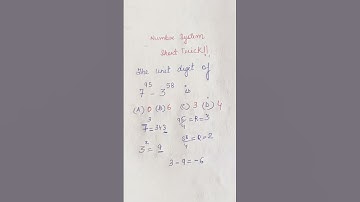 Number System
Short Trick!!
The unit digit of
7⁹⁵ - 3⁵⁸ is
(A) 0 (B) 6 (C) 3 (D) 4
7³ = 343 95/4 = R = 3
3² = 9 58/4 = R = 2
3 - 9 = -6